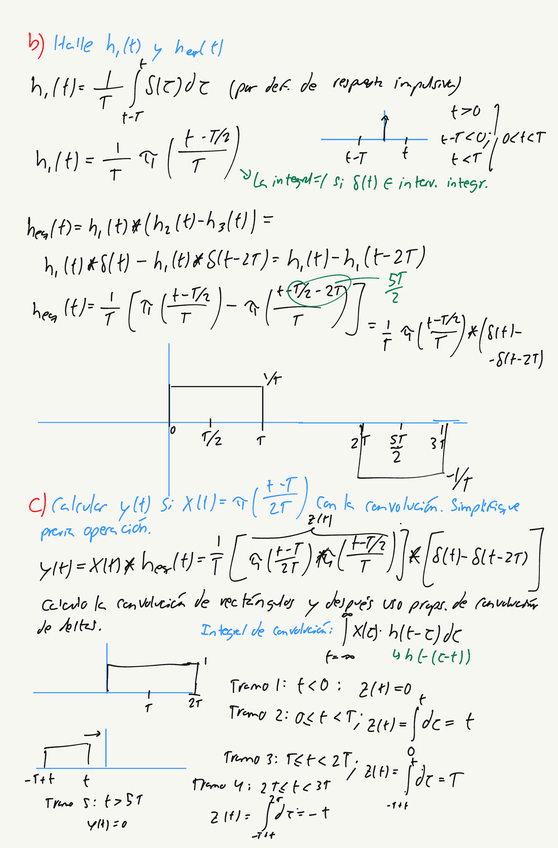 b) Halle h₁(t) y heq(t)
h₁(t) = 1/T ∫_{t-T}^{t} δ(τ)dτ (por def. de respuesta impulsiva)
t>0
t-T<0; 0<t<T
t<T
t-T t
h₁(t) = 1/T π((t-T/2)/T)
La integral=1 si δ(t) ∈ interv. integr.
heq(t) = h₁(t)*(h₂(t)-h₃(t)) =
h₁(t)*δ(t) - h₁(t)*δ(t-2T) = h₁(t)-h₁(t-2T)
5T/2
heq(t) = 1/T [π((t-T/2)/T) - π((t-T/2-2T)/T)] = 1/T π((t-T/2)/T)*(δ(t)-
-δ(t-2T)
1/T
0 T/2 T 2T 5T/2 3T
-1/T
c) Calcular y(t) si X(t) = π((t-T)/2T) con la convolución. Simplifique
previa operación.
z(t)
y(t) = X(t)*heq(t) = 1/T [π((t-T)/2T)*π((t-T/2)/T)]*[δ(t)-δ(t-2T)]
Calculo la convolución de rectángulos y después uso props. de convolución
de deltas.
Integral de convolución: ∫_{t=-∞}^{∞} X(τ)·h(t-τ)dτ
h(-(τ-t))
1
T 2T
Tramo 1: t<0: z(t)=0
Tramo 2: 0≤t<T; z(t)=∫_{0}^{t} dτ = t
-T+t t
Tramo 3: T≤t<2T; z(t)=∫_{-T+t}^{t} dτ = T
Tramo 4: 2T≤t<3T
z(t)=∫_{-T+t}^{2T} dτ = -t
Tramo 5: t>5T
y(t)=0